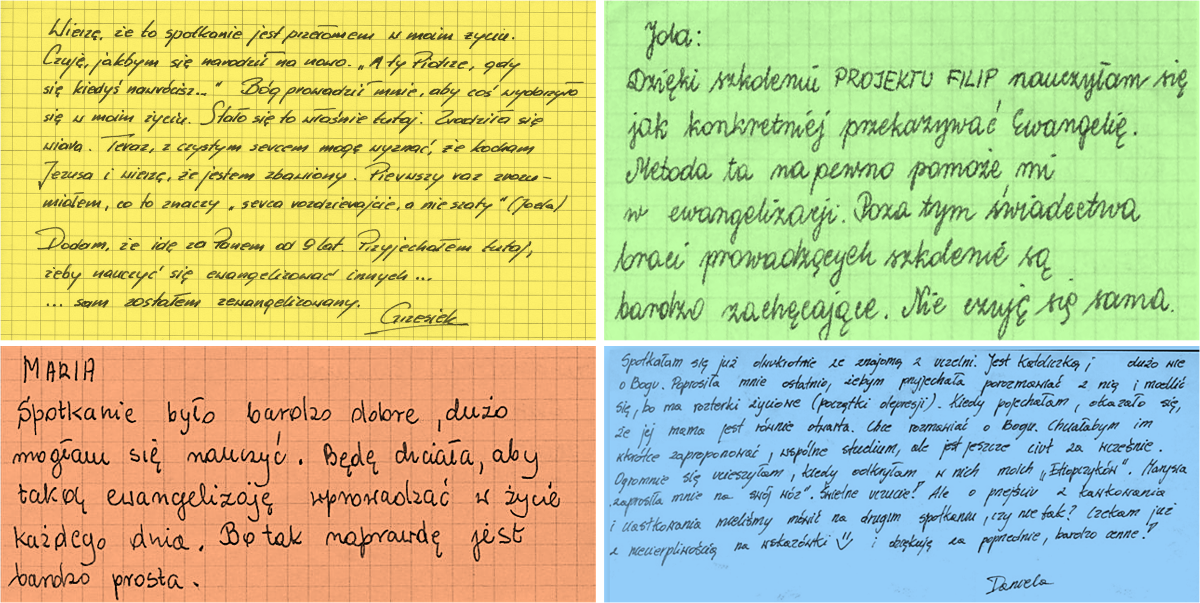 Wierzę, że to spotkanie jest przełomem w moim życiu.
Czuję, jakbym się narodził na nowo. „A ty Piotrze, gdy
się kiedyś nawrócisz..." Bóg prowadził mnie, aby coś wydarzyło
się w moim życiu. Stało się to właśnie tutaj. Zrodziła się
wiara. Teraz, z czystym sercem mogę wyznać, że kocham
Jezusa i wierzę, że jestem zbawiony. Pierwszy raz zrozu-
miałem, co to znaczy „serca rozdzierajcie, a nie szaty" (Joela)
Dodam, że idę za Panem od 9 lat. Przyjechałem tutaj,
żeby nauczyć się ewangelizować innych ...
... sam zostałem zewangelizowany.
Grzesiek
Jola:
Dzięki szkoleniu PROJEKTU FILIP nauczyłam się
jak konkretniej przekazywać Ewangelię.
Metoda ta na pewno pomoże mi
w ewangelizacji. Poza tym świadectwa
braci prowadzących szkolenie są
bardzo zachęcające. Nie czuję się sama.
MARIA
Spotkanie było bardzo dobre, dużo
mogłam się nauczyć. Będę chciała, aby
taką ewangelizaję wprowadzać w życie
każdego dnia. Bo tak naprawdę jest
bardzo prosta.
Spotkałam się już dwukrotnie ze znajomą z uczelni. Jest Katoliczką i dużo wie
o Bogu. Poprosiła mnie ostatnio, żebym przyjechała porozmawiać z nią i modlić
się, bo ma rozterki życiowe (początki depresji). Kiedy pojechałam, okazało się,
że jej mama jest równie otwarta. Chce rozmawiać o Bogu. Chciałabym im
wkrótce zaproponować, wspólne studium, ale jest jeszcze ciut za wcześnie.
Ogromnie się ucieszyłam, kiedy odkryłam w nich moich „Etiopczyków". Marysia
zaprosiła mnie na swój „wóz". Świetne uczucie! Ale o przejściu z
i mieliśmy mówić na drugim spotkaniu, czy nie tak? Czekam już
z niecierpliwością na wskazówki i dziękuję za poprzednie, bardzo cenne!
Daniela